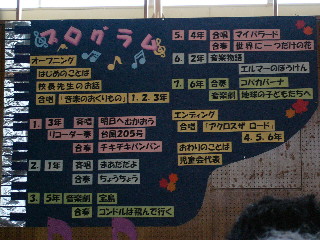 プログラム
オープニング
はじめのことば
校長先生のお話
合唱 「音楽のおくりもの」 1.2.3年
1. 3年 斉唱 明日へむかおう
リコーダー奏 台風205号
合奏 チキチキバンバン
2. 1年 斉唱 まあだだよ
合奏 ちょうちょう
3. 5年 音楽劇 宝島
合奏 コンドルは飛んで行く
5. 4年 合唱 マイバラード
合奏 世界に一つだけの花
6. 2年 音楽物語
エルマーのぼうけん
7. 6年 合奏 コパカバーナ
音楽劇 地球の子どもたちへ
エンディング
合唱 「アクロスザ ロード」
4.5.6年
おわりのことば
児童会代表